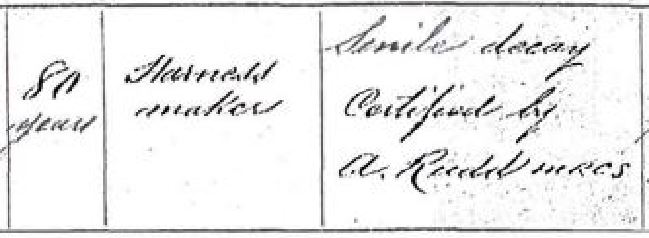 80
years
Harness
maker
Senile decay
Certified by
A. Rudd MRCS